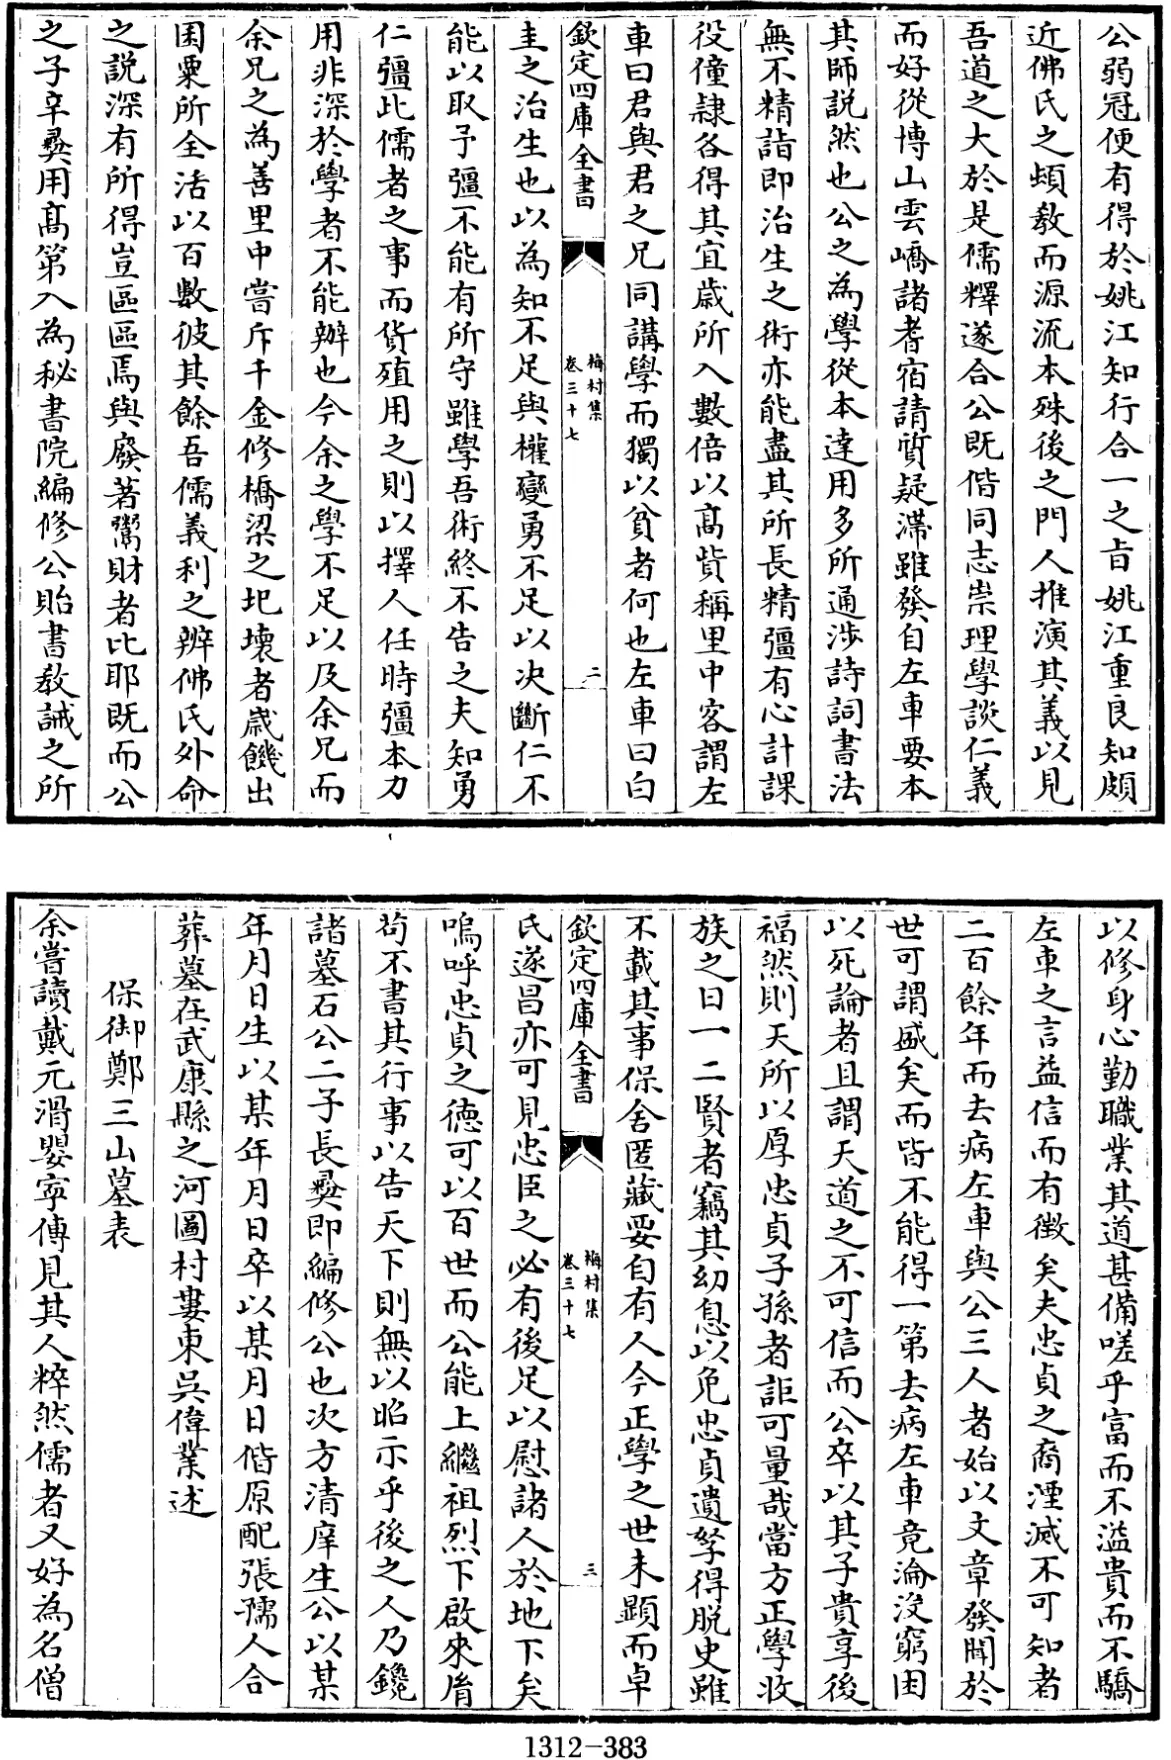 公弱冠便有得於姚江知行合一之旨姚江重良知頗
近佛氏之頓教而源流本殊後之門人推演其義以見
吾道之大於是儒釋遂合公既偕同志崇理學談仁義
而好從博山雲嶠諸耆宿請質疑滯雖發自左車要本
其師說然也公之為學從本達用多所通涉詩詞書法
無不精詣即治生之術亦能盡其所長精彊有心計課
役僮隸各得其宜歲所入數倍以高貲稱里中客謂左
車曰君與君之兄同講學而獨以貧者何也左車曰白
欽定四庫全書
梅村集
卷三十七
二
圭之治生也以為知不足與權變勇不足以決斷仁不
能以取予彊不能有所守雖學吾術終不告之夫知勇
仁彊此儒者之事而貨殖用之則以擇人任時彊本力
用非深於學者不能辦也今余之學不足以及余兄而
余兄之為善里中嘗斥千金修橋梁之圮壞者歲饑出
囷粟所全活以百數彼其餘吾儒義利之辨佛氏外命
之說深有所得豈區區焉與廢著鬻財者比耶既而公
之子辛彝用高第入為秘書院編修公貽書教誡之所
以修身心勤職業其道甚備嗟乎富而不溢貴而不驕
左車之言益信而有徵矣夫忠貞之裔湮滅不可知者
二百餘年而去病左車與公三人者始以文章發聞於
世可謂盛矣而皆不能得一第去病左車竟淪沒窮困
以死論者且謂天道之不可信而公卒以其子貴享後
福然則天所以厚忠貞子孫者詎可量哉當方正學收
族之日一二賢者竊其幼息以免忠貞遺孥得脫史雖
不載其事保舍匿藏要自有人今正學之世未顯而卓
欽定四庫全書
梅村集
卷三十七
三
氏遂昌亦可見忠臣之必有後足以慰諸人於地下矣
嗚呼忠貞之德可以百世而公能上繼祖烈下啟來胤
苟不書其行事以告天下則無以昭示乎後之人乃鑱
諸墓石公二子長彝即編修公也次方清庠生公以某
年月日生以某年月日卒以某月日偕原配張孺人合
葬墓在武康縣之河圖村婁東吳偉業述
保御鄭三山墓表
余嘗讀戴元滑嬰寧傳見其人粹然儒者又好為名僧
1312-383